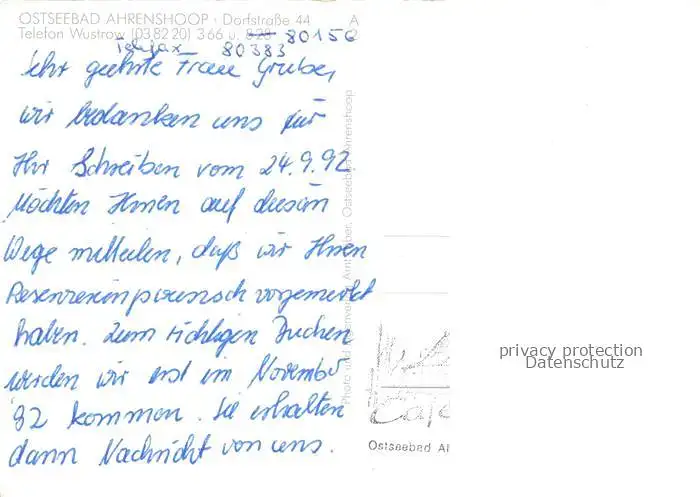 OSTSEEBAD AHRENSHOOP · Dorfstraße 44 A
Telefon Wustrow (03 82 20) 3 66 u. 8 28 80156
Telefax 80383
Sehr geehrte Frau Gruber,
wir bedanken uns für
Ihr Schreiben vom 24.9.92.
Möchten Ihnen auf diesem
Wege mitteilen, daß wir Ihren
Reservierungswunsch vorgemerkt
haben. Zum richtigen Buchen
werden wir erst im November
92 kommen. Sie erhalten
dann Nachricht von uns.
Ostseebad Ahrenshoop
Ostseebad Al
privacy protection
Datenschutz